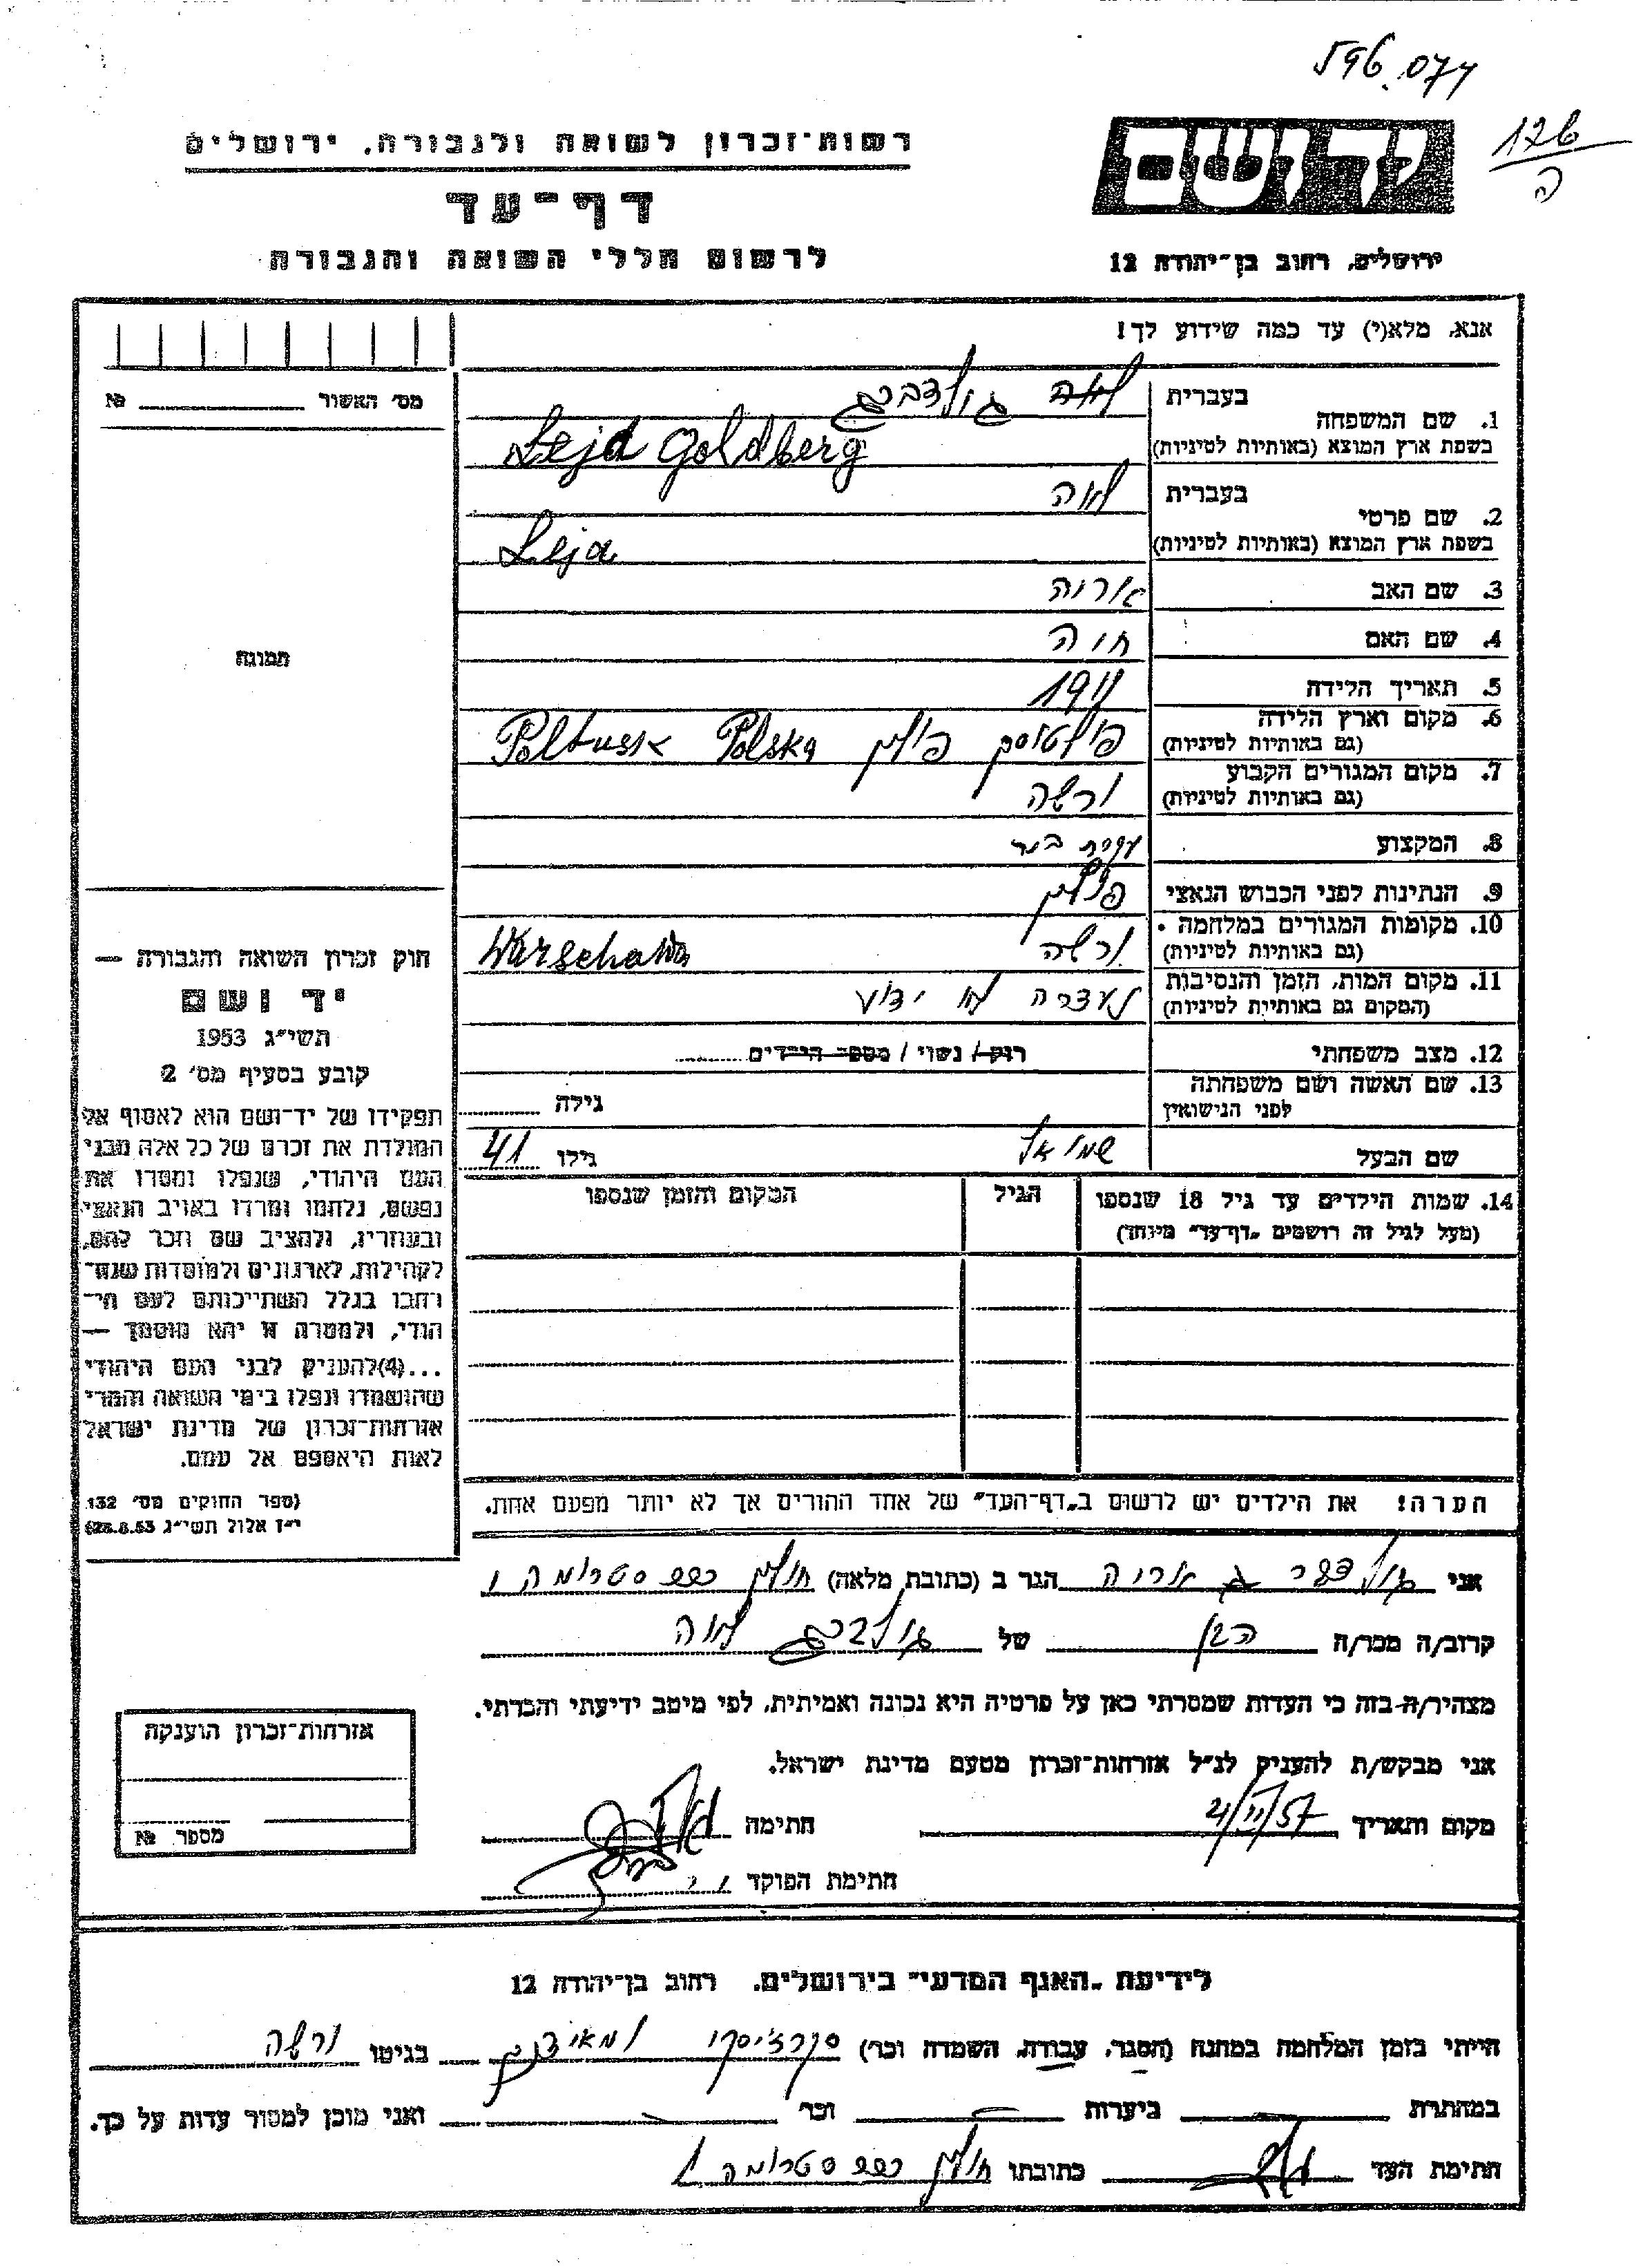 596.077
126
ה
ידושם
ירושלים, רחוב בן־יהודה 12
רשות־זכרון לשואה ולגבורה, ירושלים
דף־עד
לרשום חללי השואה והגבורה
אנא, מלא(י) עד כמה שידוע לך!
1. שם המשפחה בעברית לאה גולדברג
בשפת ארץ המוצא (באותיות לטיניות) Leja Goldberg
2. שם פרטי בעברית לאה
בשפת ארץ המוצא (באותיות לטיניות) Leja
3. שם האב אריה
4. שם האם חוה
5. תאריך הלידה 1911
6. מקום וארץ הלידה פולטוסק פולין Poltussk Polska
(גם באותיות לטיניות)
7. מקום המגורים הקבוע ורשה
(גם באותיות לטיניות)
8. המקצוע עקרת בית
9. הנתינות לפני הכבוש הנאצי פולין
10. מקומות המגורים במלחמה ורשה Warschawa
(גם באותיות לטיניות)
11. מקום המות, הזמן והנסיבות נעדרה לא ידוע
(המקום גם באותיות לטיניות)
12. מצב משפחתי רוק / נשוי / מספר הילדים
13. שם האשה ושם משפחתה
לפני הנישואין גילה
שם הבעל שמואל גילו 41
14. שמות הילדים עד גיל 18 שנספו הגיל המקום והזמן שנספו
(מעל לגיל זה רושמים „דף־עד” מיוחד)
הערה! את הילדים יש לרשום ב„דף־העד” של אחד ההורים אך לא יותר מפעם אחת.
מס׳ האשור №
תמונה
חוק זכרון השואה והגבורה —
יד ושם
תשי״ג 1953
קובע בסעיף מס׳ 2
תפקידו של יד־ושם הוא לאסוף אל
המולדת את זכרם של כל אלה מבני
העם היהודי, שנפלו ומסרו את
נפשם, נלחמו ומרדו באויב הנאצי
ובעוזריו, ולהציב שם וזכר להם,
לקהילות, לארגונים ולמוסדות שנח־
רבו בגלל השתייכותם לעם הי־
הודי, ולמטרה זו יהא מוסמך —
...(4)להעניק לבני העם היהודי
שהושמדו ונפלו בימי השואה והמרי
אזרחות־זכרון של מדינת ישראל
לאות היאספם אל עמם.
(ספר החוקים מס׳ 132,
י״ז אלול תשי״ג 28.8.53)
אני גולדברג אריה הגר ב (כתובת מלאה) חולון סטרומה 1
קרוב/ה מכר/ה הבן של גולדברג לאה
מצהיר/ה בזה כי העדות שמסרתי כאן על פרטיה היא נכונה ואמיתית, לפי מיטב ידיעתי והכרתי.
אני מבקש/ת להעניק לנ״ל אזרחות־זכרון מטעם מדינת ישראל.
מקום ותאריך 21/II/57 חתימה
חתימת הפוקד
אזרחות־זכרון הוענקה
מספר №
לידיעת „האגף המדעי” בירושלים, רחוב בן־יהודה 12
הייתי בזמן המלחמה במחנה (הסגר, עבודה, השמדה וכו׳) סקרז׳יסקו ומאידנק בגיטו ורשה
במחתרת ביערות וכו׳ ואני מוכן למסור עדות על כך.
חתימת העד כתובתו חולון סטרומה 1